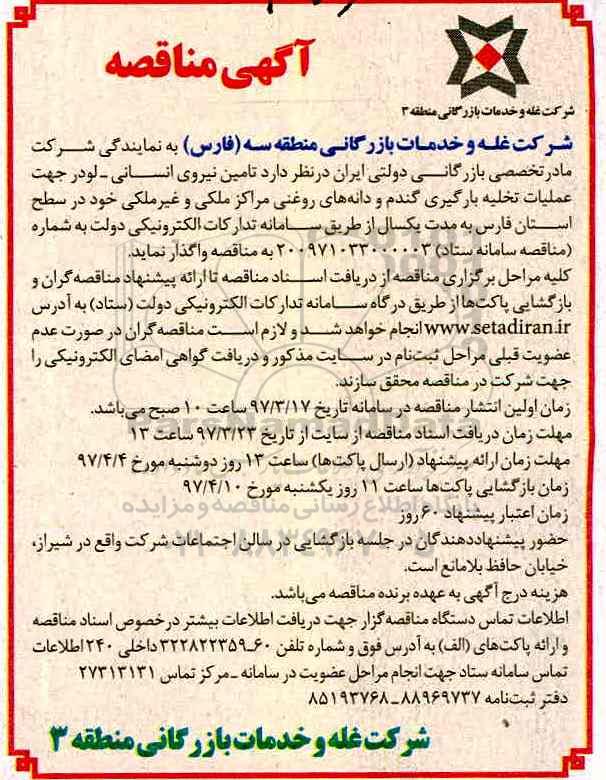 آگهی مناقصه
شرکت غله و خدمات بازرگانی منطقه ۳
شرکت غله و خدمات بازرگانی منطقه سه (فارس) به نمایندگی شرکت
مادرتخصصی بازرگانی دولتی ایران درنظر دارد تامین نیروی انسانی ـ لودر جهت
عملیات تخلیه بارگیری گندم و دانه‌های روغنی مراکز ملکی و غیرملکی خود در سطح
استان فارس به مدت یکسال از طریق سامانه تدارکات الکترونیکی دولت به شماره
(مناقصه سامانه ستاد) ۲۰۰۹۷۱۰۳۳۰۰۰۰۰۳ به مناقصه واگذار نماید.
کلیه مراحل برگزاری مناقصه از دریافت اسناد مناقصه تا ارائه پیشنهاد مناقصه‌گران و
بازگشایی پاکت‌ها از طریق درگاه سامانه تدارکات الکترونیکی دولت (ستاد) به آدرس
www.setadiran.ir انجام خواهد شد و لازم است مناقصه‌گران در صورت عدم
عضویت قبلی مراحل ثبت‌نام در سایت مذکور و دریافت گواهی امضای الکترونیکی را
جهت شرکت در مناقصه محقق سازند.
زمان اولین انتشار مناقصه در سامانه تاریخ ۹۷/۳/۱۷ ساعت ۱۰ صبح می‌باشد.
مهلت زمان دریافت اسناد مناقصه از سایت از تاریخ ۹۷/۳/۲۳ ساعت ۱۳
مهلت زمان ارائه پیشنهاد (ارسال پاکت‌ها) ساعت ۱۳ روز دوشنبه مورخ ۹۷/۴/۴
زمان بازگشایی پاکت‌ها ساعت ۱۱ روز یکشنبه مورخ ۹۷/۴/۱۰
زمان اعتبار پیشنهاد ۶۰ روز
حضور پیشنهاددهندگان در جلسه بازگشایی در سالن اجتماعات شرکت واقع در شیراز،
خیابان حافظ بلامانع است.
هزینه درج آگهی به عهده برنده مناقصه می‌باشد.
اطلاعات تماس دستگاه مناقصه‌گزار جهت دریافت اطلاعات بیشتر درخصوص اسناد مناقصه
و ارائه پاکت‌های (الف) به آدرس فوق و شماره تلفن ۶۰ـ۳۲۲۸۲۲۳۵۹ داخلی ۲۴۰ اطلاعات
تماس سامانه ستاد جهت انجام مراحل عضویت در سامانه ـ مرکز تماس ۲۷۳۱۳۱۳۱
دفتر ثبت‌نامه ۸۸۹۶۹۷۳۷ ـ ۸۵۱۹۳۷۶۸
شرکت غله و خدمات بازرگانی منطقه ۳